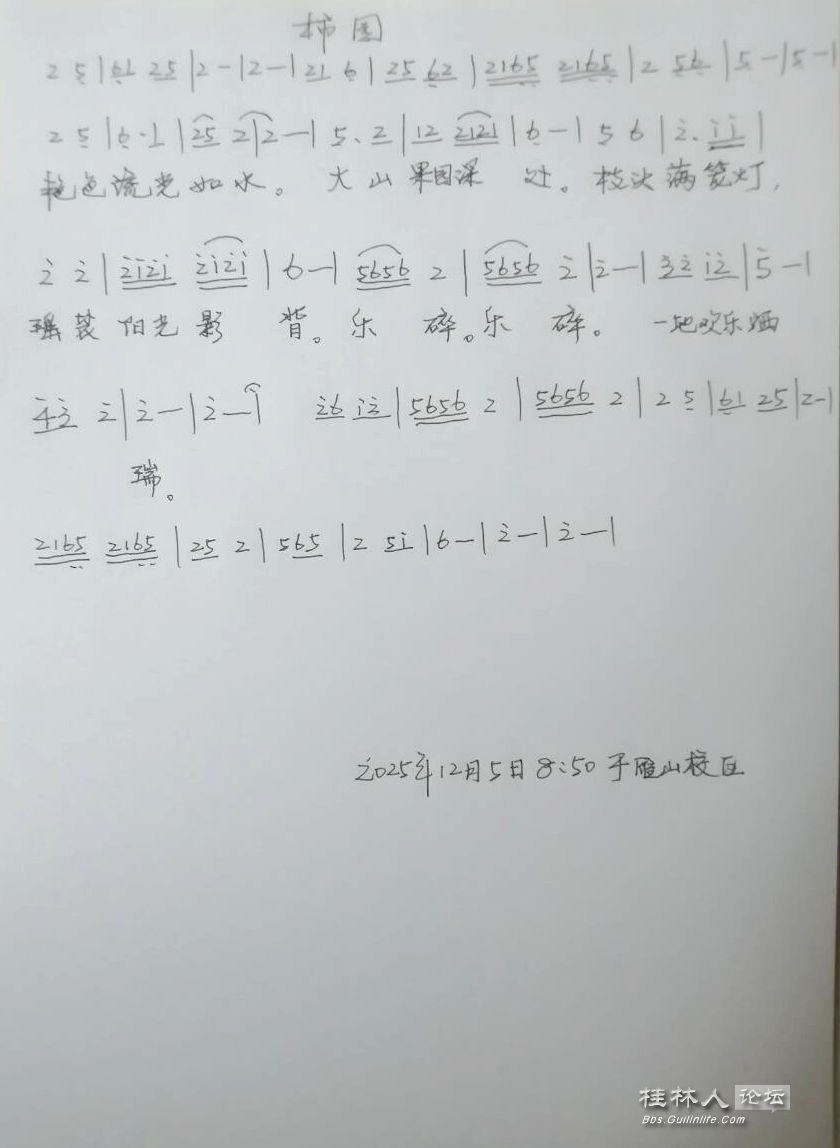 柿园
2 5 | 61 25 | 2 - | 2 - | 21 6 | 25 62 | 2165 2165 | 2 56 | 5 - | 5 - |
2 5 | 6 · 1 | 25 2 | 2 - | 5. 2 | 12 2121 | 6 - | 5 6 | 2. 11 |
艳色流光如水。大山果园深处。枝头满笼灯,
2 2 | 2121 2121 | 6 - | 5656 2 | 5656 2 | 2 - | 32 12 | 5 - |
瑶装阳光影背。乐碎。乐碎。一地欢乐洒
43 2 | 2 - | 2 - | 26 12 | 5656 2 | 5656 2 | 2 5 | 61 25 | 2 - |
瑞。
2165 2165 | 25 2 | 565 | 2 51 | 6 - | 2 - | 2 - |
2025年12月5日8:50于雁山校区
桂林人论坛
Bbs.Guilinlife.Com